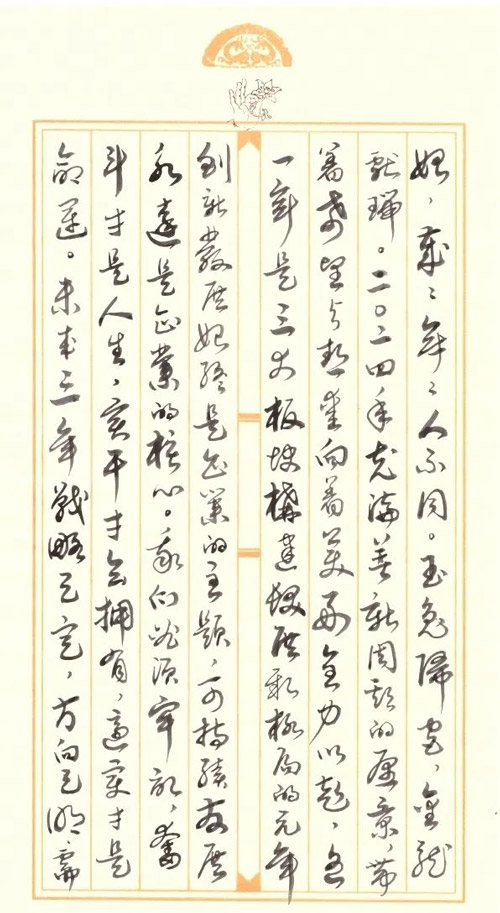 始，岁岁年年人不同。玉兔归宫，金龙
献瑞。二〇二四年充满着新周期的愿景，带
着希望与热望向着美好全力以赴，这
一年是三大板块构建发展新格局的元年
创新发展始终是企业的主题，可持续发展
永远是企业的核心。我们必须牢记，奋
斗才是人生，实干才会拥有，适变才是
命运。未来三年战略已定，方向已明，需